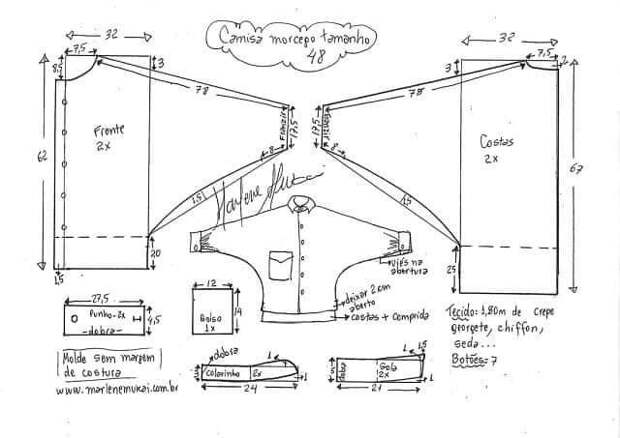 Camisa morcego tamanho
48
32
7,5
8,5
3
78
Frente
2x
62
Franzir
17,5
8
15
20
1,5
32
7,5
2
3
78
17,5
8
Costas
2x
67
15
25
Marlene Mukai
viés na
abertura
deixar 2 cm
aberto
costas + comprida
27,5
Punho-2x
-dobra-
4,5
12
Bolso
1x
14
Molde sem margem
de costura
www.marlenemukai.com.br
dobra
1
colarinho
2x
1
24
dobra
Gola
2x
1
1,5
1
21
Tecido: 1,80m de crepe
georgete, chiffon,
seda...
Botões: 7